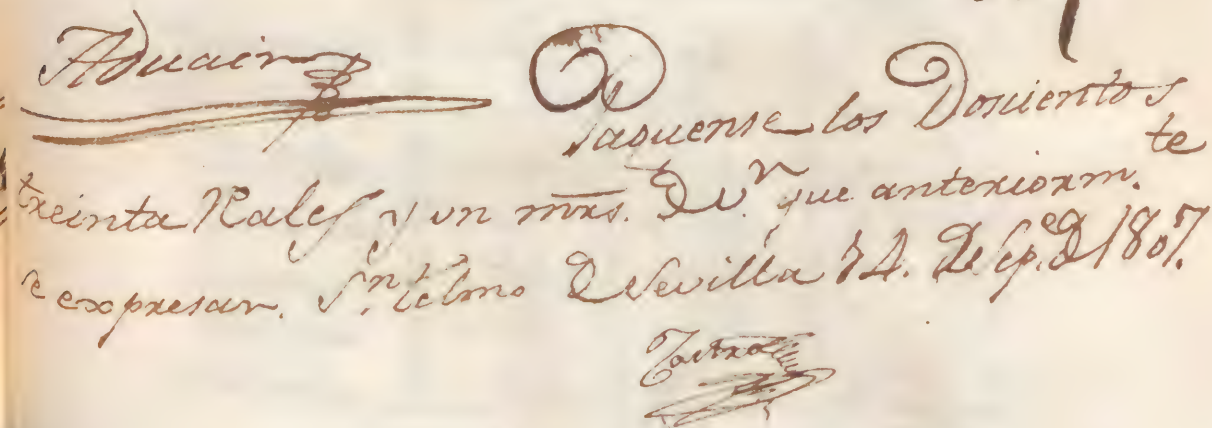 Aduain
Paguense los Doscientos
treinta Rales y un mrs. De vn. que anteriormte
e expresan. Sn. telmo De Sevilla 14. de Sepe. D 1807.
Castro